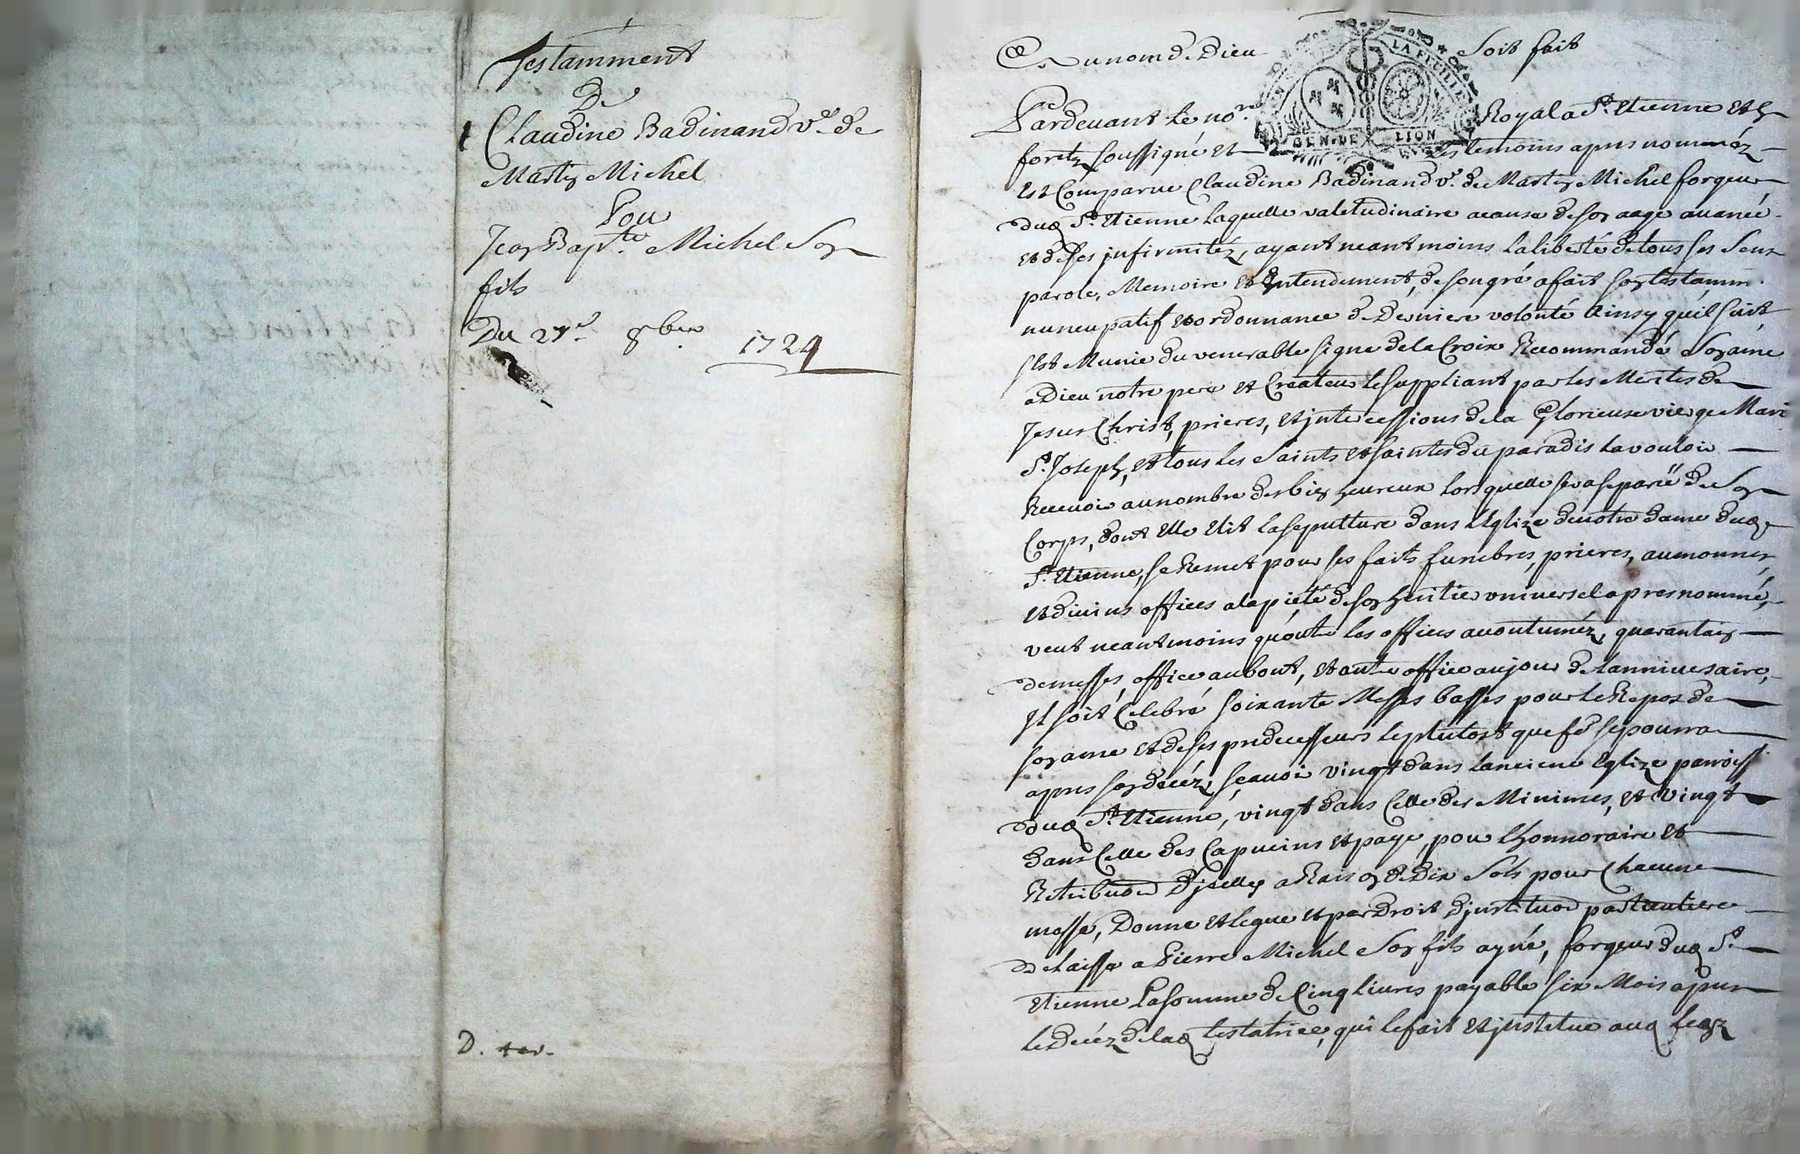 Testamment
De
Claudine Badinand vᵉ. de
Marty Michel
Pou
Jean Bapᵗᵉ. Michel Son
fils
Du 27ᵉ. 8bre 1724
D. ter.
Au nom de Dieu Soit fait
LA FEUILLE
GEN. DE LION
Pardevant le noʳᵉ Royal a Sᵗ. Etienne et en
foretz soussigné et les temoins apres nomméz
Est Comparue Claudine Badinand vᵉ. de Marty Michel forgeur
dud Sᵗ. Etienne laquelle valetudinaire acause de son aage avancé
et de ses infirmitéz, ayant neantmoins la liberté de tous ses sens
parole, Memoire et Entendement, de son gré a fait son testamm.
nuncupatif et ordonnance de Derniere volonté Ainsy quil suit
sest Munie du venerable signe de la Croix Recommandé Son ame
a Dieu notre pere et Createur le suppliant par les Merites de
Jesus Christ, prieres, et jntercessions de la Glorieuse vierge Mari
Sᵗ. Joseph, et tous les Saints et saintes du paradis la vouloir
Recevoir au nombre des bien heureux lors quelle sera separeé de Son
Corps, dont Elle Elit la sepulture dans LEglize de notre dame dud
Sᵗ. Etienne, se Remet pour ses faits funebres, prieres, aumonnes,
et divins offices a la pieté de son heritier universel apres nommé,
veut neantmoins quoutre les offices accoutuméz, quarantain
de messes, office au bout, et autre office au jour de lanniversaire,
Il soit Celebré soixante Messes basses pour le Repos de
son ame et de ses predecesseurs le plutost que fe se pourra
apres son decéz, sçavoir vingt dans lancienne Eglize parroiss
dud Sᵗ. Etienne, vingt dans Celle des Minimes, et vingt
dans Celle des Capucins et paye, pour lhonnoraire et
Retribuōn Djcelles a Raison de Dix Sols pour Chacune
messe, Donne et legue et par Droit Djnstituōn particuliere
delaisse a Pierre Michel Son fils ayné, forgeur dud Sᵗ.
Etienne La somme de Cinq livres payable six Mois apres
le Decéz de lad testatrice, qui le fait et jnstitue aud legz